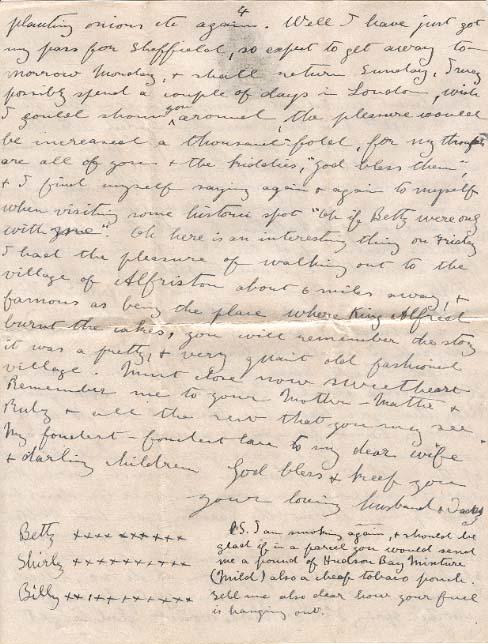 4
planting onions etc again. Well I have just got
my pass for Sheffield, so expect to get away to-
morrow Monday, & shall return Sunday, I may
possibly spend a couple of days in London, wish
I could show you around, the pleasure would
be increased a thousand-fold, for my thoughts
are all of you & the kiddies, "God bless them",
& I find myself saying again & again to myself
when visiting some historic spot "Oh if Betty were only
with me". Oh here is an interesting thing on Friday
I had the pleasure of walking out to the
village of Alfriston about 6 miles away, &
famous as being the place where King Alfred
burnt the cakes, you will remember the story
it was a pretty, & very quaint old fashioned
village. Must close now sweetheart
Remember me to your Mother - Mattie &
Ruby & all the rest that you may see
My fondest - fondest love to my dear wife
& darling children God bless & keep you
your loving husband & Daddy
Betty xxxxxxxxxx
Shirly xxxxxxxxxx
Billy xxxxxxxxxx
P.S. I am smoking again, & should be
glad if in a parcel you would send
me a pound of Hudson Bay Mixture
(Mild) also a cheap tobaco pouch.
Tell me also dear how your fuel
is hanging out.